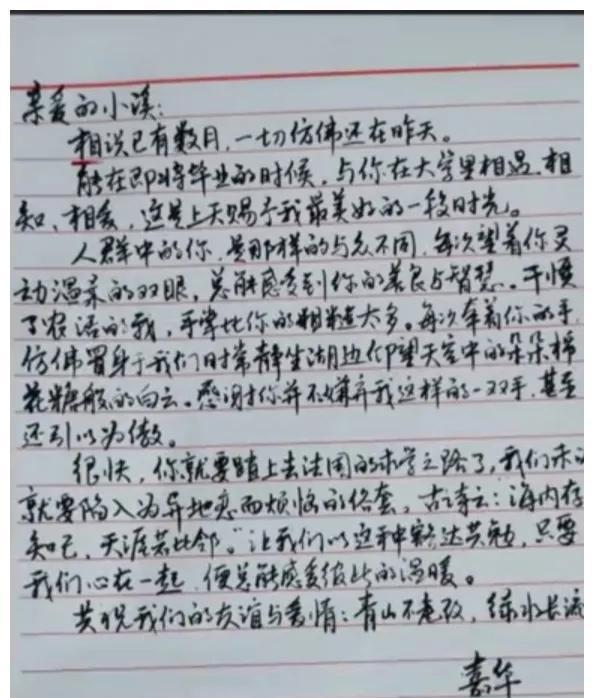 亲爱的小溪：
相识已有数月，一切仿佛还在昨天。
能在即将毕业的时候，与你在大学里相遇、相
知、相爱，这是上天赐予我最美好的一段时光。
人群中的你，是那样的与众不同，每次望着你灵
动温柔的双眼，总能感受到你的善良与智慧。干惯
了农活的我，手掌比你的粗糙太多。每次牵着你的手，
仿佛置身于我们时常静坐湖边仰望天空中的朵朵棉
花糖般的白云。感谢你并不嫌弃我这样的一双手，甚至
还引以为傲。
很快，你就要踏上去法国的求学之路了，我们亦
就要陷入为异地恋而烦恼的俗套，古诗云：“海内存
知己，天涯若比邻。”让我们以这种豁达共勉，只要
我们心在一起，便总能感受彼此的温暖。
共祝我们的友谊与爱情：青山不老，绿水长流
嘉年